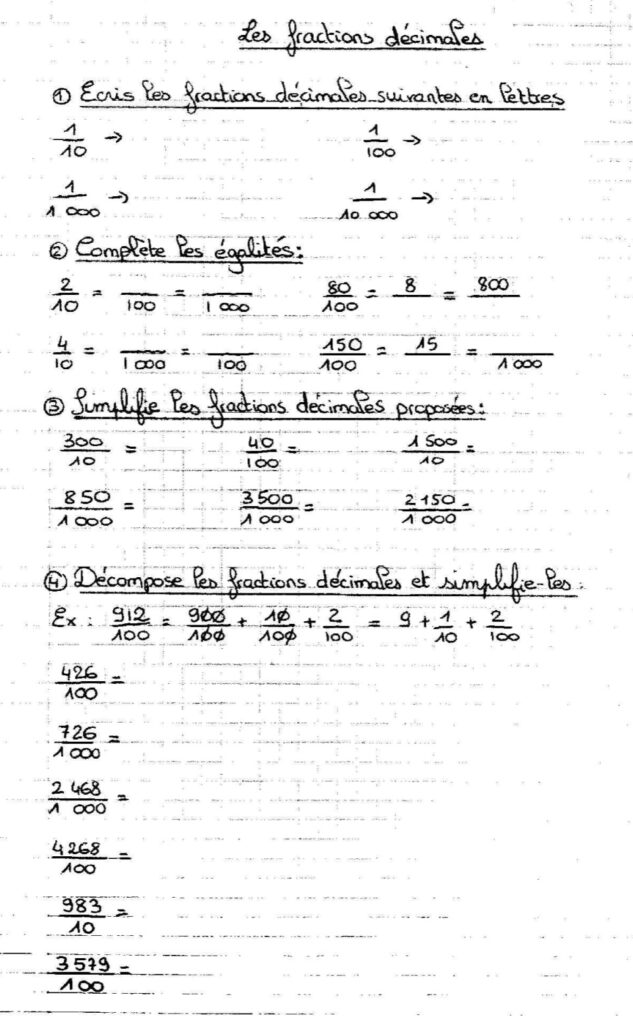 Les fractions décimales
① Ecris les fractions décimales suivantes en lettres
1/10 → 1/100 →
1/1 000 → 1/10 000 →
② Complète les égalités :
2/10 = __/100 = __/1 000 80/100 = 8/__ = 800/__
4/10 = __/1 000 = __/100 150/100 = 15/__ = __/1 000
③ Simplifie les fractions décimales proposées :
300/10 = 40/100 = 1 500/10 =
850/1 000 = 3500/1 000 = 2 150/1 000 =
④ Décompose les fractions décimales et simplifie-les :
Ex : 912/100 = 900/100 + 10/100 + 2/100 = 9 + 1/10 + 2/100
426/100 =
726/1 000 =
2 468/1 000 =
4268/100 =
983/10 =
3 579/100 =